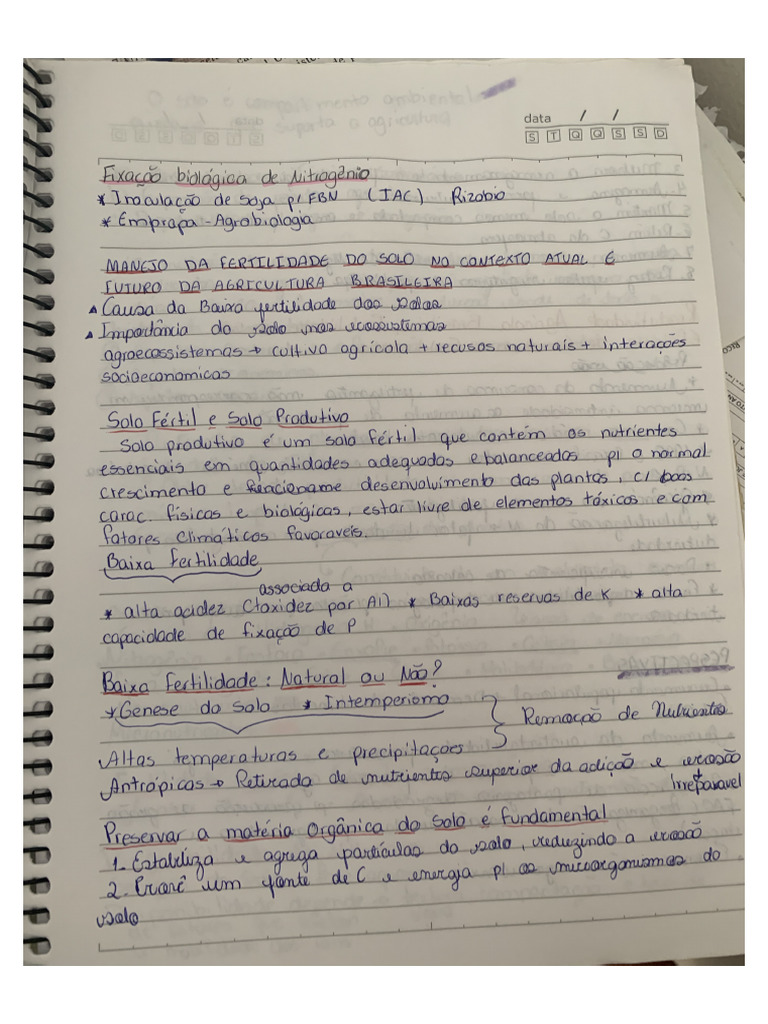 data / /
S T Q Q S S D
Fixação biológica de Nitrogênio
* Inoculação de Soja p/ FBN (IAC) Rizobio
* Embrapa - Agrobiologia
MANEJO DA FERTILIDADE DO SOLO NO CONTEXTO ATUAL E
FUTURO DA AGRICULTURA BRASILEIRA
▵ Causa da Baixa fertilidade dos solos
▵ Importância do solo nos ecossistemas
agroecossistemas → cultivo agrícola + recusos naturais + interações
socioeconomicas
Solo Fértil e Solo Produtivo
Solo produtivo é um solo fértil que contém os nutrientes
essenciais em quantidades adequadas e balanceadas p/ o normal
crescimento e desenvolvimento das plantas, c/ boas
carac. físicas e biológicas, estar livre de elementos tóxicos e com
fatores climáticos favoraveis.
Baixa Fertilidade
associada a
* alta acidez (toxidez por Al) * Baixas reservas de K * alta
capacidade de fixação de P
Baixa Fertilidade: Natural ou Não?
* Gênese do Solo * Intemperismo
} Remoção de Nutrientes
Altas temperaturas e precipitações
Antrópicas → Retirada de nutrientes superior da adição e erosão
Irreparavel
Preservar a matéria Orgânica do Solo é fundamental
1. Estabiliza e agrega partículas do solo, reduzindo a erosão
2. um fonte de C e energia p/ os microorganismos do
solo